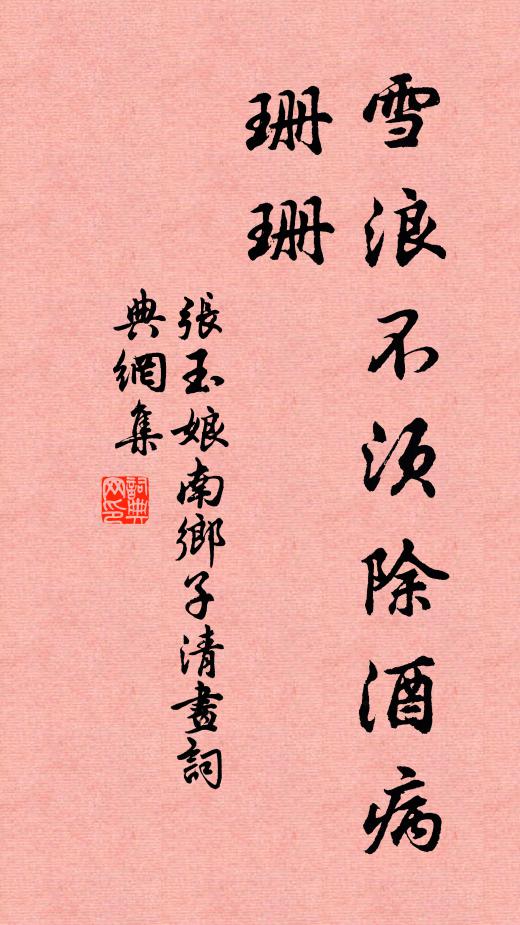 雪浪不須除酒病
珊珊
張玉娘南鄉子清畫詞
典網集
詞典網印